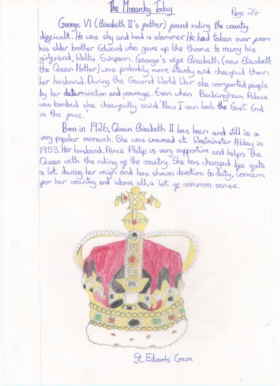 The Monarchy Today
Page 26
George VI (Elizabeth II's father) found ruling the country
difficult. He was shy and had a stammer. He had taken over from
his older brother Edward who gave up the throne to marry his
girlfriend, Wallis Simpson. George's wife Elizabeth (now Elizabeth
the Queen Mother) was probably more sturdy and changed them
her husband. During the Second World War she comforted people
by her determination and courage. Even when Buckingham Palace
was bombed she cheerfully said "Now I can look the East End
in the face.
Born in 1926, Queen Elizabeth II has been and still is a
very popular monarch. She was crowned at Westminster Abbey in
1953. Her husband, Prince Philip is very supportive and helps the
Queen with the ruling of the country. She has changed
a lot during her reign and has shown devotion to duty, concern
for her country and above all, a lot of common sense.
St Edwards Crown